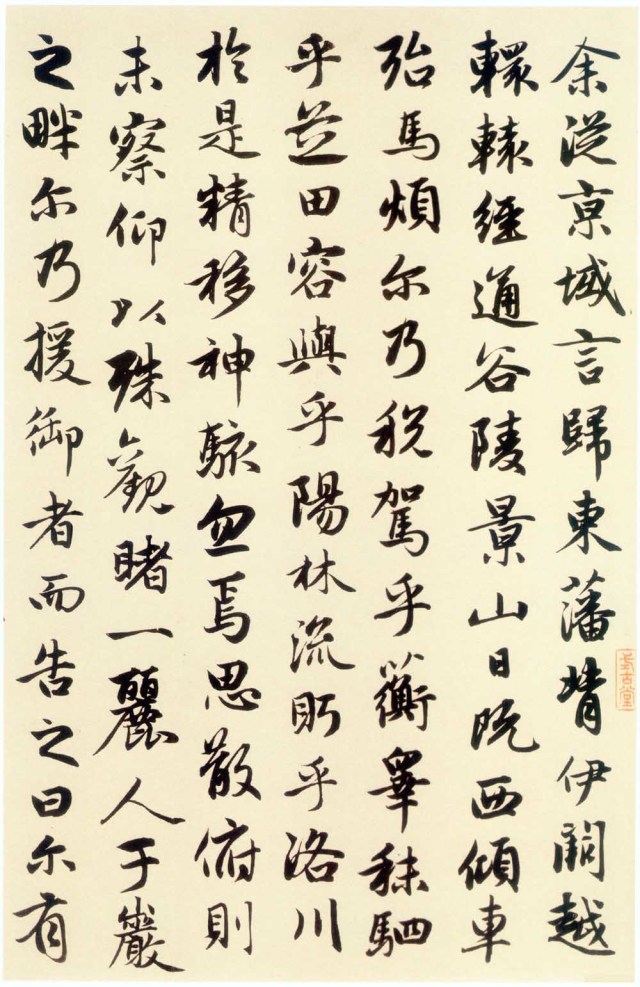 余從京域言歸東藩背伊闕越
轘轅經通谷陵景山日既西傾車
殆馬煩尔乃税駕乎蘅皋秣駟
乎芝田容與乎陽林流眄乎洛川
於是精移神駭忽焉思散俯則
未察仰以殊觀睹一麗人于巖
之畔尔乃援御者而告之曰尔有
式古堂